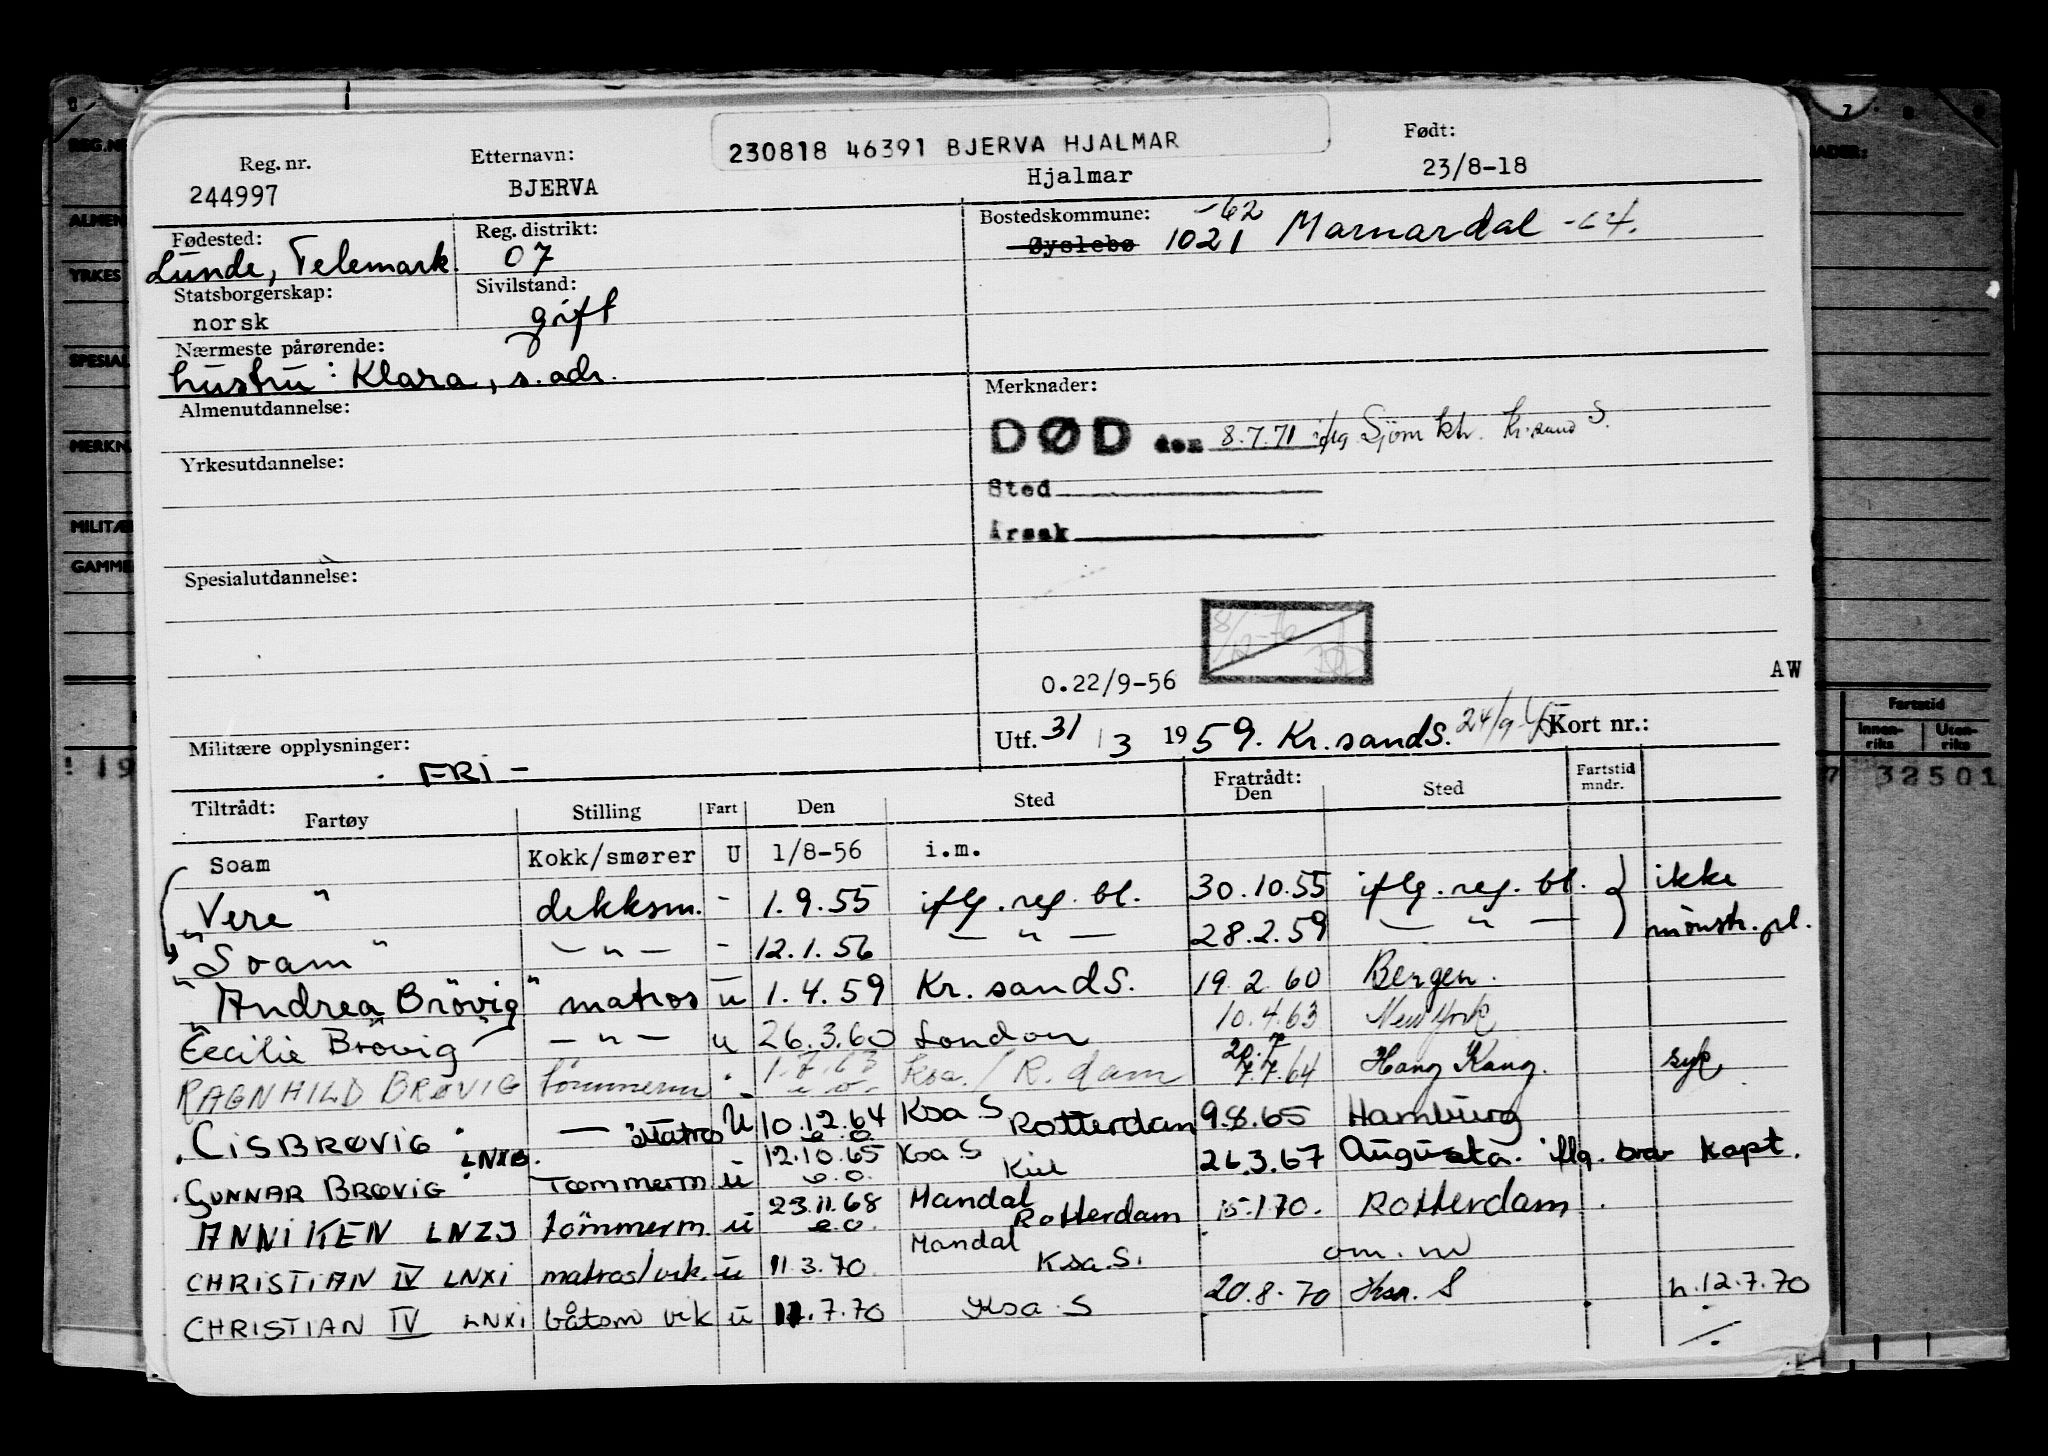 230818 46391 BJERVA HJALMAR
Reg. nr. Etternavn: Født:
244997 BJERVA Hjalmar 23/8-18
Fødested: Reg. distrikt: Bostedskommune: -62
Lunde, Telemark. 07 Øyslebø 1021 Marnardal -64.
Statsborgerskap: Sivilstand:
norsk gift
Nærmeste pårørende:
hustru: Klara, s. adr.
Almenutdannelse: Merknader:
DØD den 8.7.71 iflg Sjöm ktr. Kr.sand S.
Yrkesutdannelse:
Sted
Årsak
Spesialutdannelse:
0.22/9-56 AW
Militære opplysninger: Utf. 31/3 1959. Kr.sandS. Kort nr.:
- FRI -
Tiltrådt: Fartøy Stilling Fart Den Sted Fratrådt: Den Sted Fartstid mndr.
Soam Kokk/smører U 1/8-56 i.m.
"Vere" dekksm. - 1.9.55 iflg. reg. bl. 30.10.55 iflg. reg. bl. } ikke
"Soam" — " — - 12.1.56 — " — 28.2.59 — " — mönstr. pl.
"Andrea Brövig" matros u 1.4.59 Kr.sandS. 19.2.60 Bergen.
"Cecilie Brövig" — " — u 26.3.60 London 10.4.63 New York
RAGNHILD BRØVIG tömmerm " 1.7.63 e.o. Ksa./R.dam 7.7.64 Hong Kong. syk
CISBRØVIG — " — Matros U 10.12.64 e.o. Ksa S Rotterdam 9.8.65 Hamburg
GUNNAR BRØVIG LNXB. Tømmerm ü 12.10.65 e.o. Ksa S Kiel 26.3.67 Augusta. iflg. brev Kapt.
ANNIKEN LNZJ tömmerm. ü 23.11.68 e.o. Mandal Rotterdam 15.1.70. Rotterdam.
CHRISTIAN IV LNXI matros/vik. ü 11.3.70. Mandal Ksa.S. om. m
CHRISTIAN IV LNXI båtsm vik ü 11.7.70 Ksa. S 20.8.70 Ksa. S h.12.7.70
REG.NR
ALMEN
YRKES
SPESIAL
MERKN
MILITÆ
GAMME
Fartstid
Innen-riks Uten-riks
! 19 7 32501